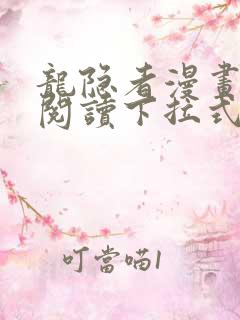 龍隐者漫畫
閱讀下拉式
叮當喵1